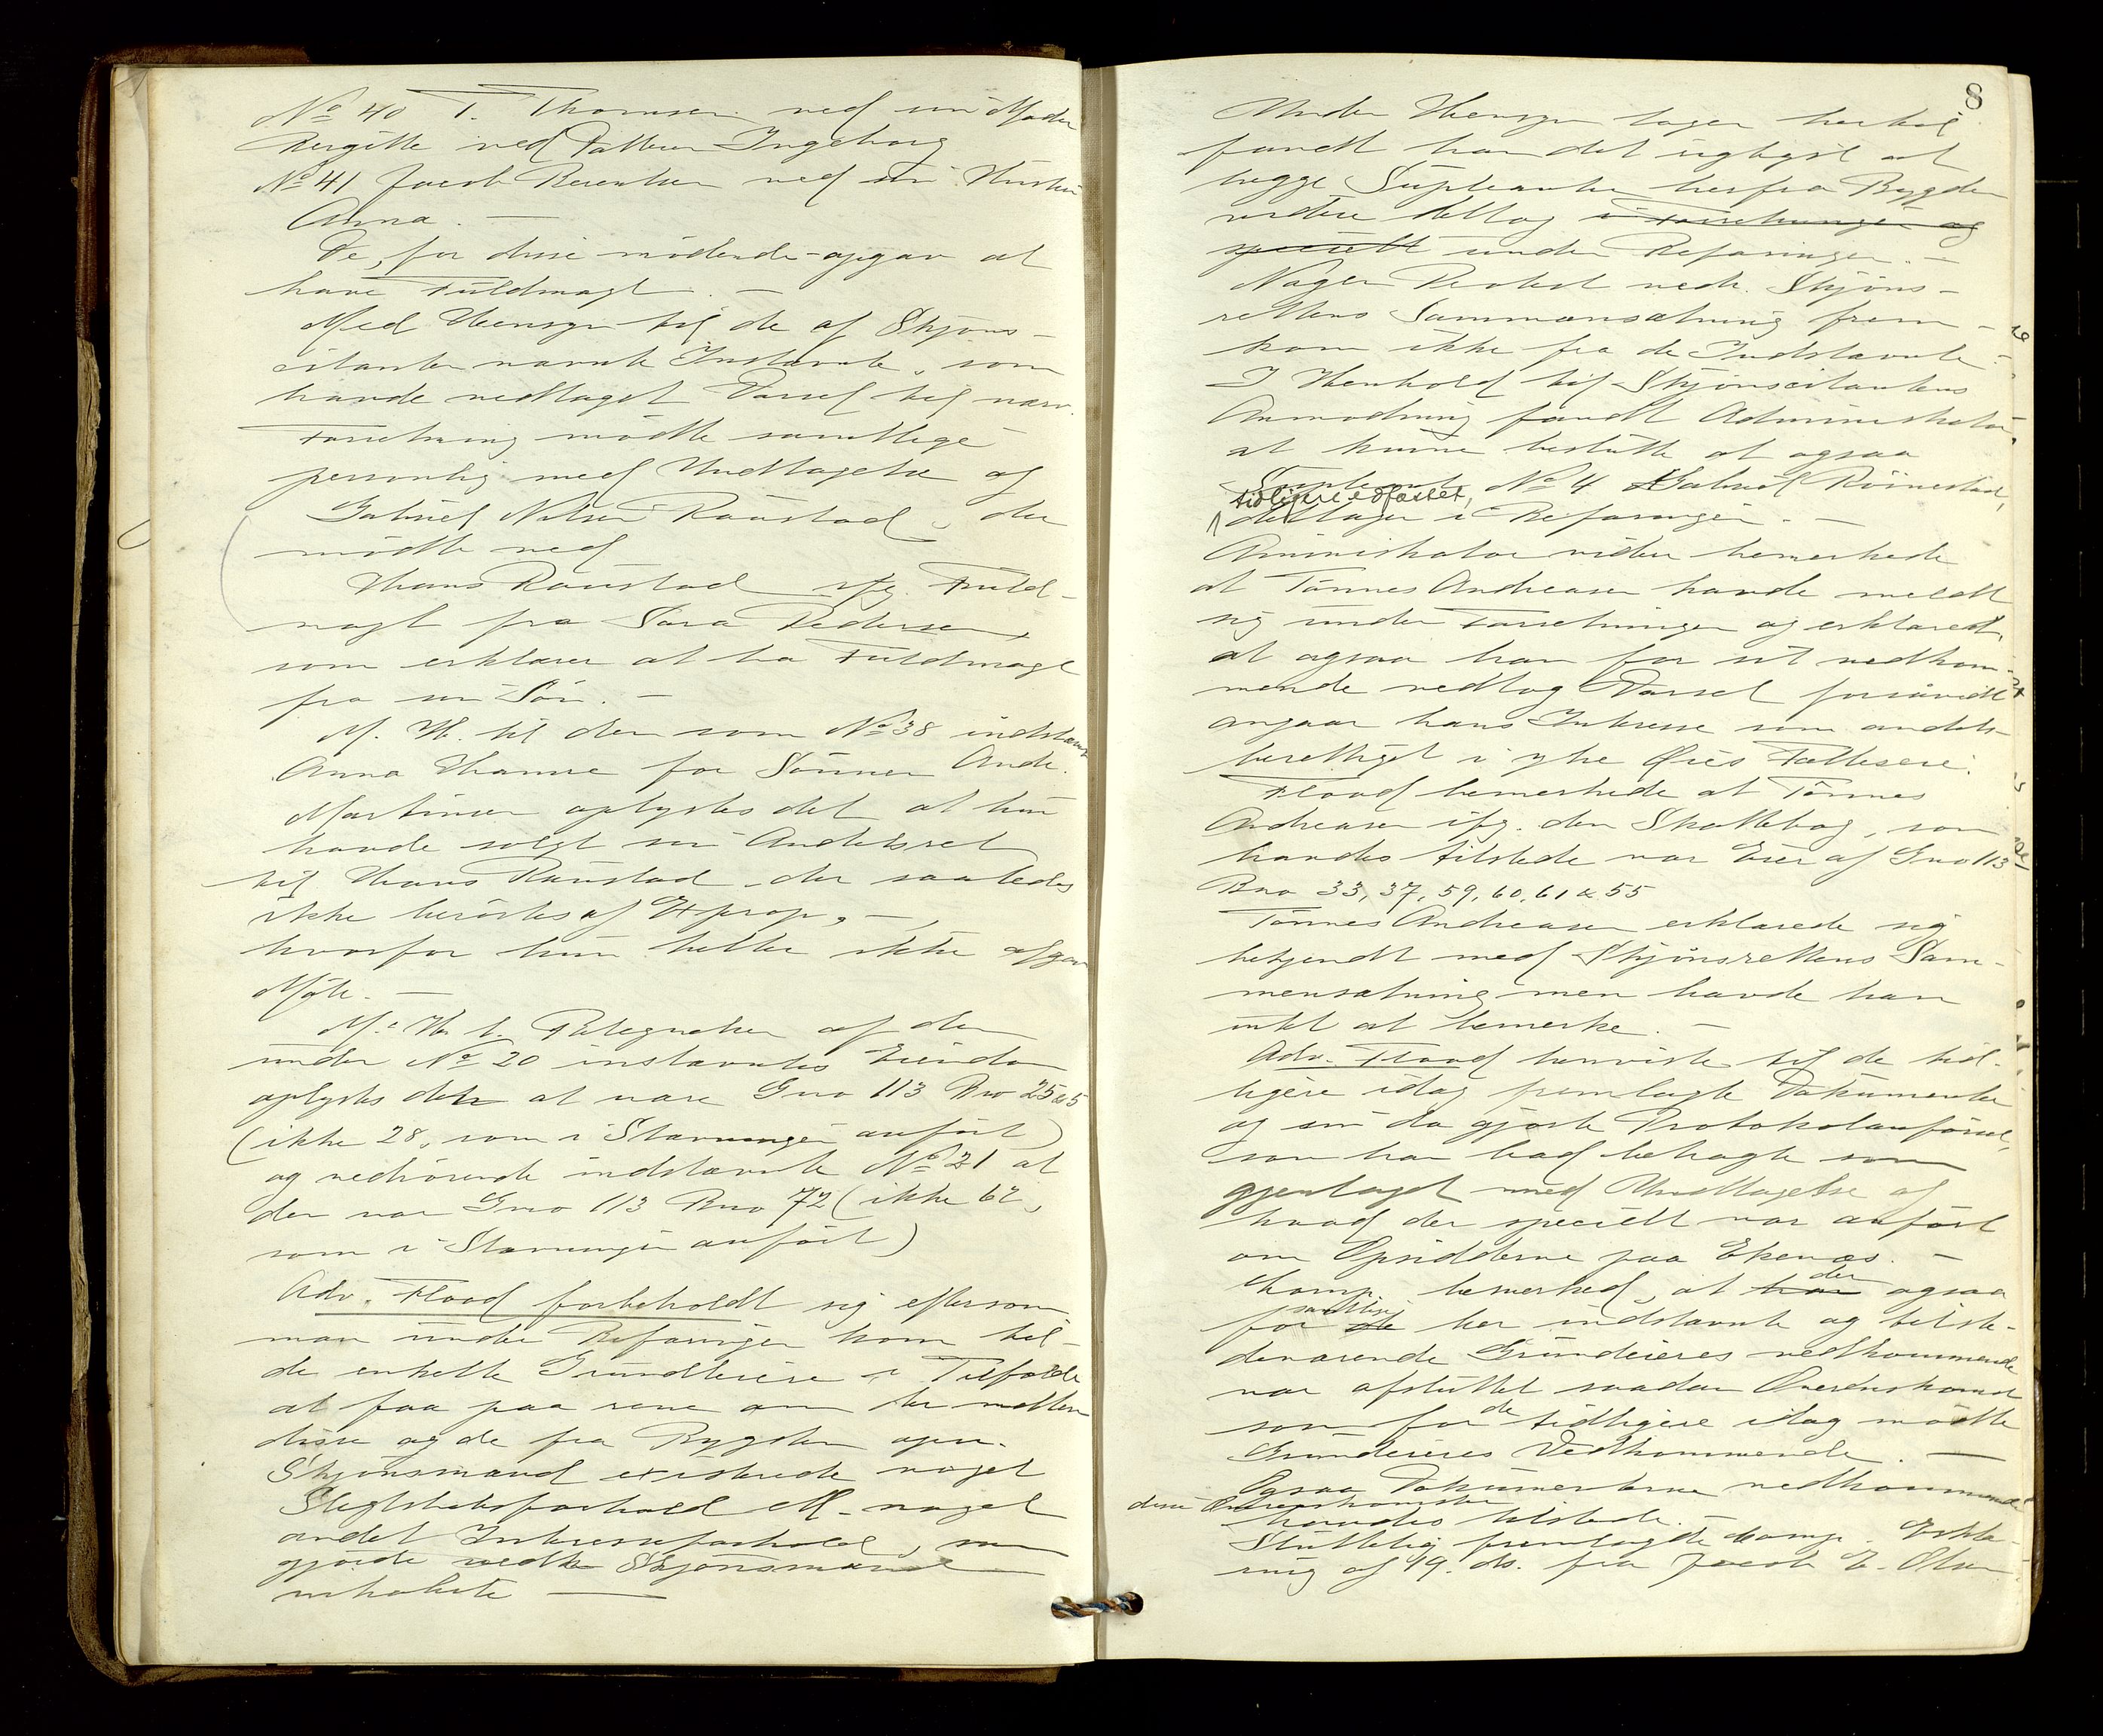 No 40 T. Thomsen ved sin Moder
Bergitte ved Datteren Ingeborg
No 41 Jacob Berentsen ved sin Hustru
Anna. —
De, for disse mødende opgav at
have Fuldmagt. —
Med Hensyn til de af Skjøns-
citanten nævnte Indstævnte, som
havde vedtaget Varsel til nærv.
Forretning mødte samtlige
personlig med Undtagelse af
Gabriel Nilsen Raustad, der
mødte ved
Hans Raustad ifg. Fuld-
magt fra Sara Pedersen,
som erklærer at ha Fuldmagt
fra sin Søn. —
M. H. til den som No 38 indstævnte
Anna Hanne for Sønnen Andr.
Martinsen oplystes det at hun
havde solgt sin Andelsret
til Hans Raustad der saaledes
ikke berøres af Exprop, —
hvorfor hun heller ikke afgav
Møte. —
M. H. t. Betegnelsen af den
under No 20 instævntes Eiendom
oplystes den at være Gno 113 Bno 25 & 5
(ikke 28, som i Stævningen anført)
og vedrørende indstævnte No 21 at
den var Gno 113 Bno 72 (ikke 62,
som i Stævningen anført)
Adv. Flood forbeholdt sig eftersom
man under Befaringen kom til
de enkelte Grundeiere i Tilfælde
at faa paa rene om der mellem
disse og de fra Bygden opn.
Skjønsmænd existerede noget
Slegtskabsforhold ell. noget
andet Interesseforhold, som
gjorde vedk. Skjønsmænd
inhabile —
8
Under Hensyn tagen hertil
fandt han det rigtigst at
begge Supleanter herfra Bygden
videre deltog i Forretningen og
specielt under Befaringen. —
Nogen Protest vedr. Skjøns-
rettens Sammensætning frem-
kom ikke fra de Indstævnte.
I Henhold til Skjønscitantens
Anmodning fandt Administrator
at kunne beslutte at ogsaa
Supleant No 4 Gabriel Røinestad,
tidligere edfæstet,
deltager i Befaringen. —
Aministrator videre bemerkede
at Tønnes Andreasen havde meldt
sig under Forretningen og erklæret,
at ogsaa han for sit vedkom-
mende vedtog Varsel forsaavidt
angaar hans Interesse som andels-
berettiget i ytre Øies Fælleseie.
Flood bemerkede at Tønnes
Andreasen ifg. den Skattebog, som
havdes tilstede var Eier af Gno 113
Bno 33, 37, 59, 60, 61 & 55
Tønnes Andreasen erklærede sig
bekjendt med Skjønsrettens Sam-
mensætning men havde han
intet at bemerke. —
Adv. Flood henviste til de tid-
ligere idag fremlagte Dokumenter
og sin da gjorte Protokolanførsel,
som han bad betragte som
gjentaget med Undtagelse af
hvad der specielt var anført
om Opsidderne paa Ekenæs. —
Komp. bemerked, at han der ogsaa
for de samtlige her indstævnte og tilste-
deværende Grundeieres vedkommende
var afsluttet saadan Overenskomst
som for de tidligere idag mødte
Grundeieres Vedkommende. —
Ogsaa Dokumenterne vedkommende
disse Overenskomster
havdes tilstede. —
Sluttelig fremlagde Komp. Erklæ-
ring af 19. ds. fra Jacob E. Olsen